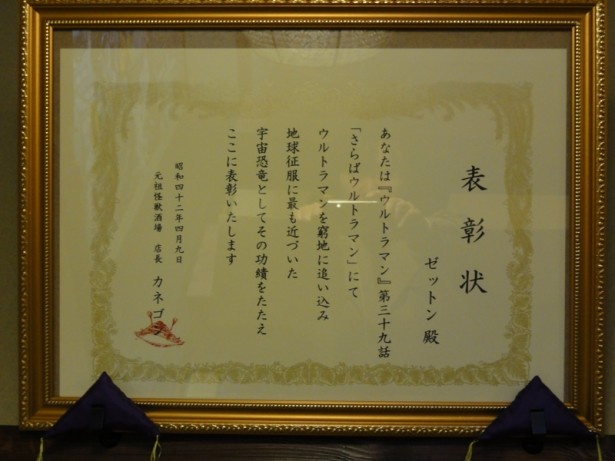 表彰状
ゼットン殿
あなたは『ウルトラマン』第三十九話
「さらばウルトラマン」にて
ウルトラマンを窮地に追い込み
地球征服に最も近づいた
宇宙恐竜としてその功績をたたえ
ここに表彰いたします
昭和四十二年四月九日
元祖怪獣酒場 店長 カネゴン